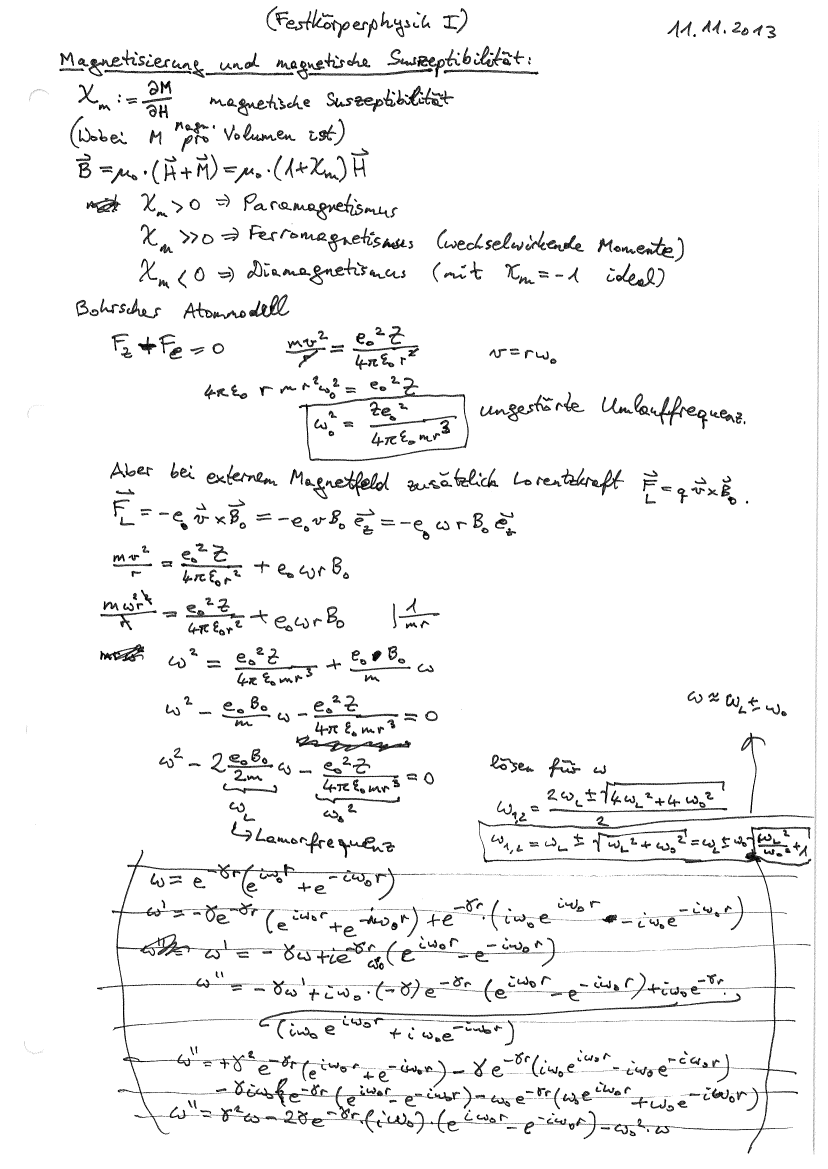 (Festkörperphysik I) 11.11.2013
Magnetisierung und magnetische Suszeptibilität:
χ_m := ∂M/∂H magnetische Suszeptibilität
(Wobei M Magn. pro Volumen ist)
B⃗ = μ₀·(H⃗+M⃗) = μ₀·(1+χ_m)H⃗
χ_m > 0 ⇒ Paramagnetismus
χ_m >> 0 ⇒ Ferromagnetismus (wechselwirkende Momente)
χ_m < 0 ⇒ Diamagnetismus (mit χ_m = -1 ideal)
Bohrsches Atommodell
F_z + F_e = 0 mv²/r = e₀²Z/4πε₀r² v = rω₀
4πε₀ r m r²ω₀² = e₀²Z
ω₀² = Ze₀²/4πε₀mr³ ungestörte Umlauffrequenz.
Aber bei externem Magnetfeld zusätzlich Lorentzkraft F⃗_L = q v⃗×B⃗₀.
F⃗_L = -e₀ v⃗×B⃗₀ = -e₀vB₀ e⃗_z = -e₀ωrB₀ e⃗_z
mv²/r = e₀²Z/4πε₀r² + e₀ωrB₀
mω²r²/r = e₀²Z/4πε₀r² + e₀ωrB₀ | 1/mr
ω² = e₀²Z/4πε₀mr³ + e₀B₀/m ω
ω² - e₀B₀/m ω - e₀²Z/4πε₀mr³ = 0
ω² - 2 e₀B₀/2m ω - e₀²Z/4πε₀mr³ = 0
ω_L ω₀²
↳ Lamorfrequenz
ω ≈ ω_L ± ω₀
lösen für ω
ω₁,₂ = (2ω_L ± √(4ω_L² + 4ω₀²))/2
ω₁,₂ = ω_L ± √(ω_L² + ω₀²) = ω_L ± ω₀√(ω_L²/ω₀² + 1)
ω = e^-γr (e^iω₀r + e^-iω₀r)
ω' = -γe^-γr (e^iω₀r + e^-iω₀r) + e^-γr · (iω₀e^iω₀r - iω₀e^-iω₀r)
ω' = -γω + ie^-γr ω₀ (e^iω₀r - e^-iω₀r)
ω'' = -γω' + iω₀·(-γ)e^-γr (e^iω₀r - e^-iω₀r) + iω₀e^-γr·
(iω₀e^iω₀r + iω₀e^-iω₀r)
ω'' = +γ²e^-γr (e^iω₀r + e^-iω₀r) - γe^-γr (iω₀e^iω₀r - iω₀e^-iω₀r)
- γiω₀e^-γr (e^iω₀r - e^-iω₀r) - ω₀e^-γr (ω₀e^iω₀r + ω₀e^-iω₀r)
ω'' = γ²ω - 2γe^-γr · (iω₀)·(e^iω₀r - e^-iω₀r) - ω₀²·ω